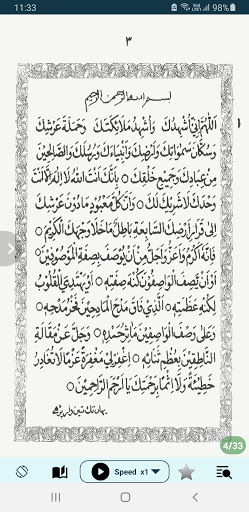 11:33
98%
٣
بسم الله الرحمن الرحيم
اَللّٰهُمَّ اِنِّيْ اُشْهِدُكَ وَاُشْهِدُ مَلَائِكَتَكَ وَحَمَلَةَ عَرْشِكَ
وَسُكَّانَ سَمٰوَاتِكَ وَاَرْضِكَ وَاَنْبِيَاءَكَ وَرُسُلَكَ وَالصَّالِحِيْنَ
مِنْ عِبَادِكَ وَجَمِيْعَ خَلْقِكَ ○ بِاَنَّكَ اَنْتَ اللهُ لَا اِلٰهَ اِلَّا اَنْتَ
وَحْدَكَ لَا شَرِيْكَ لَكَ ○ وَاَنَّ كُلَّ مَعْبُوْدٍ مَا دُوْنَ عَرْشِكَ
اِلٰى قَرَارِ اَرْضِكَ السَّابِعَةِ بَاطِلٌ مَا خَلَا وَجْهَكَ الْكَرِيْمَ ○
فَاِنَّهُ اَكْرَمُ وَاَعَزُّ وَاَجَلُّ مِنْ اَنْ يُوْصَفَ بِصِفَةِ الْمَوْصُوْفِيْنَ ○
اَوْ اَنْ يَصِفَ الْوَاصِفُوْنَ كُنْهَ صِفَتِهِ ○ اَوْ يَهْتَدِيَ الْقُلُوْبُ
لِكُنْهِ عَظَمَتِهِ ○ اَلَّذِيْ فَاقَ مَدْحَ الْمَادِحِيْنَ فَخْرُ مَدْحِهِ ○
وَعَلٰى وَصْفَ الْوَاصِفِيْنَ مَآثِرُ حَمْدِهِ ○ وَجَلَّ عَنْ مَقَالَةِ
النَّاطِقِيْنَ بِعَظِيْمِ ثَنَائِهِ ○ اِغْفِرْ لِيْ مَغْفِرَةً عَزْمًا لَا تُغَادِرُ
خَطِيْئَةً وَلَا اِثْمًا بِرَحْمَتِكَ يَا اَرْحَمَ الرَّاحِمِيْنَ ○
4/33
Speed x1